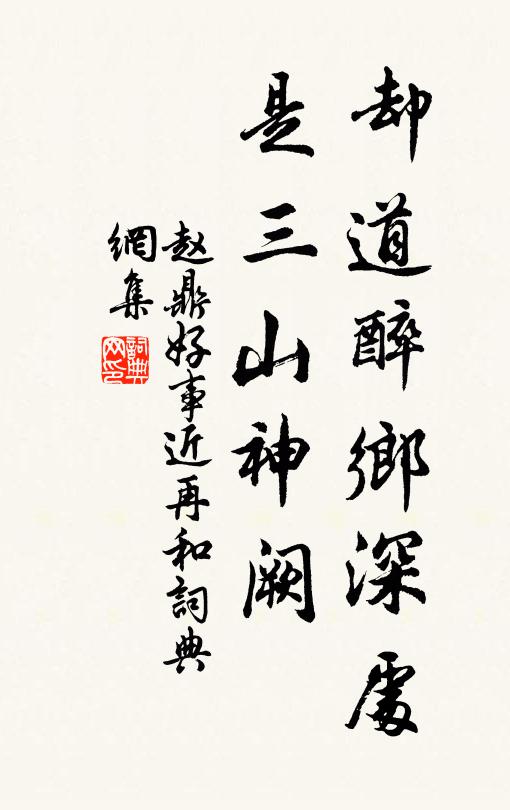 却道醉鄉深處
是三山神闕
赵鼎好事近再和詞典
網集
詞典網印